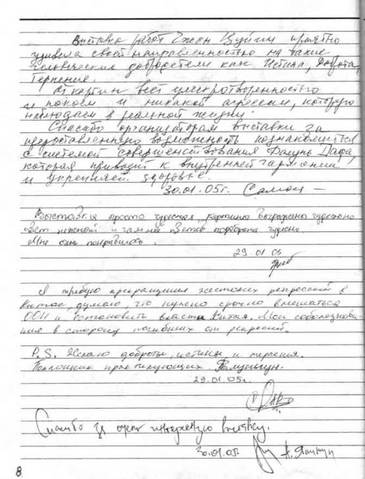 Выставка работ Джан Цуйин приятно
удивила своей направленностью на такие
человеческие добродетели как Истина, Доброта,
Терпение.
От картин веет умиротворенностью
и покоем и никакой агрессии, которую
наблюдаем в реальной жизни.
Спасибо организаторам выставки за
предоставленную возможность познакомиться
с системой совершенствования Фалунь Дафа,
которая приводит к внутренней гармонии
и укрепляет здоровье.
30.01.05г.
Выставка просто чудесная, картины
свет нежный и гамма цветов подобрана чудно
Мне очень понравилось.
29 01 05
Я требую прекращения жестоких репрессий в
Китае, думаю, что нужно срочно вмешаться
ООН и остановить власти Китая. Мои соболезнова-
ния в сторону погибших от репрессий.
P.S. Желаю доброты, истины и терпения.
Поклонник практикующих Фалуньгун.
29.01.05г.
Спасибо за очень интересную выставку.
30.01.05
8